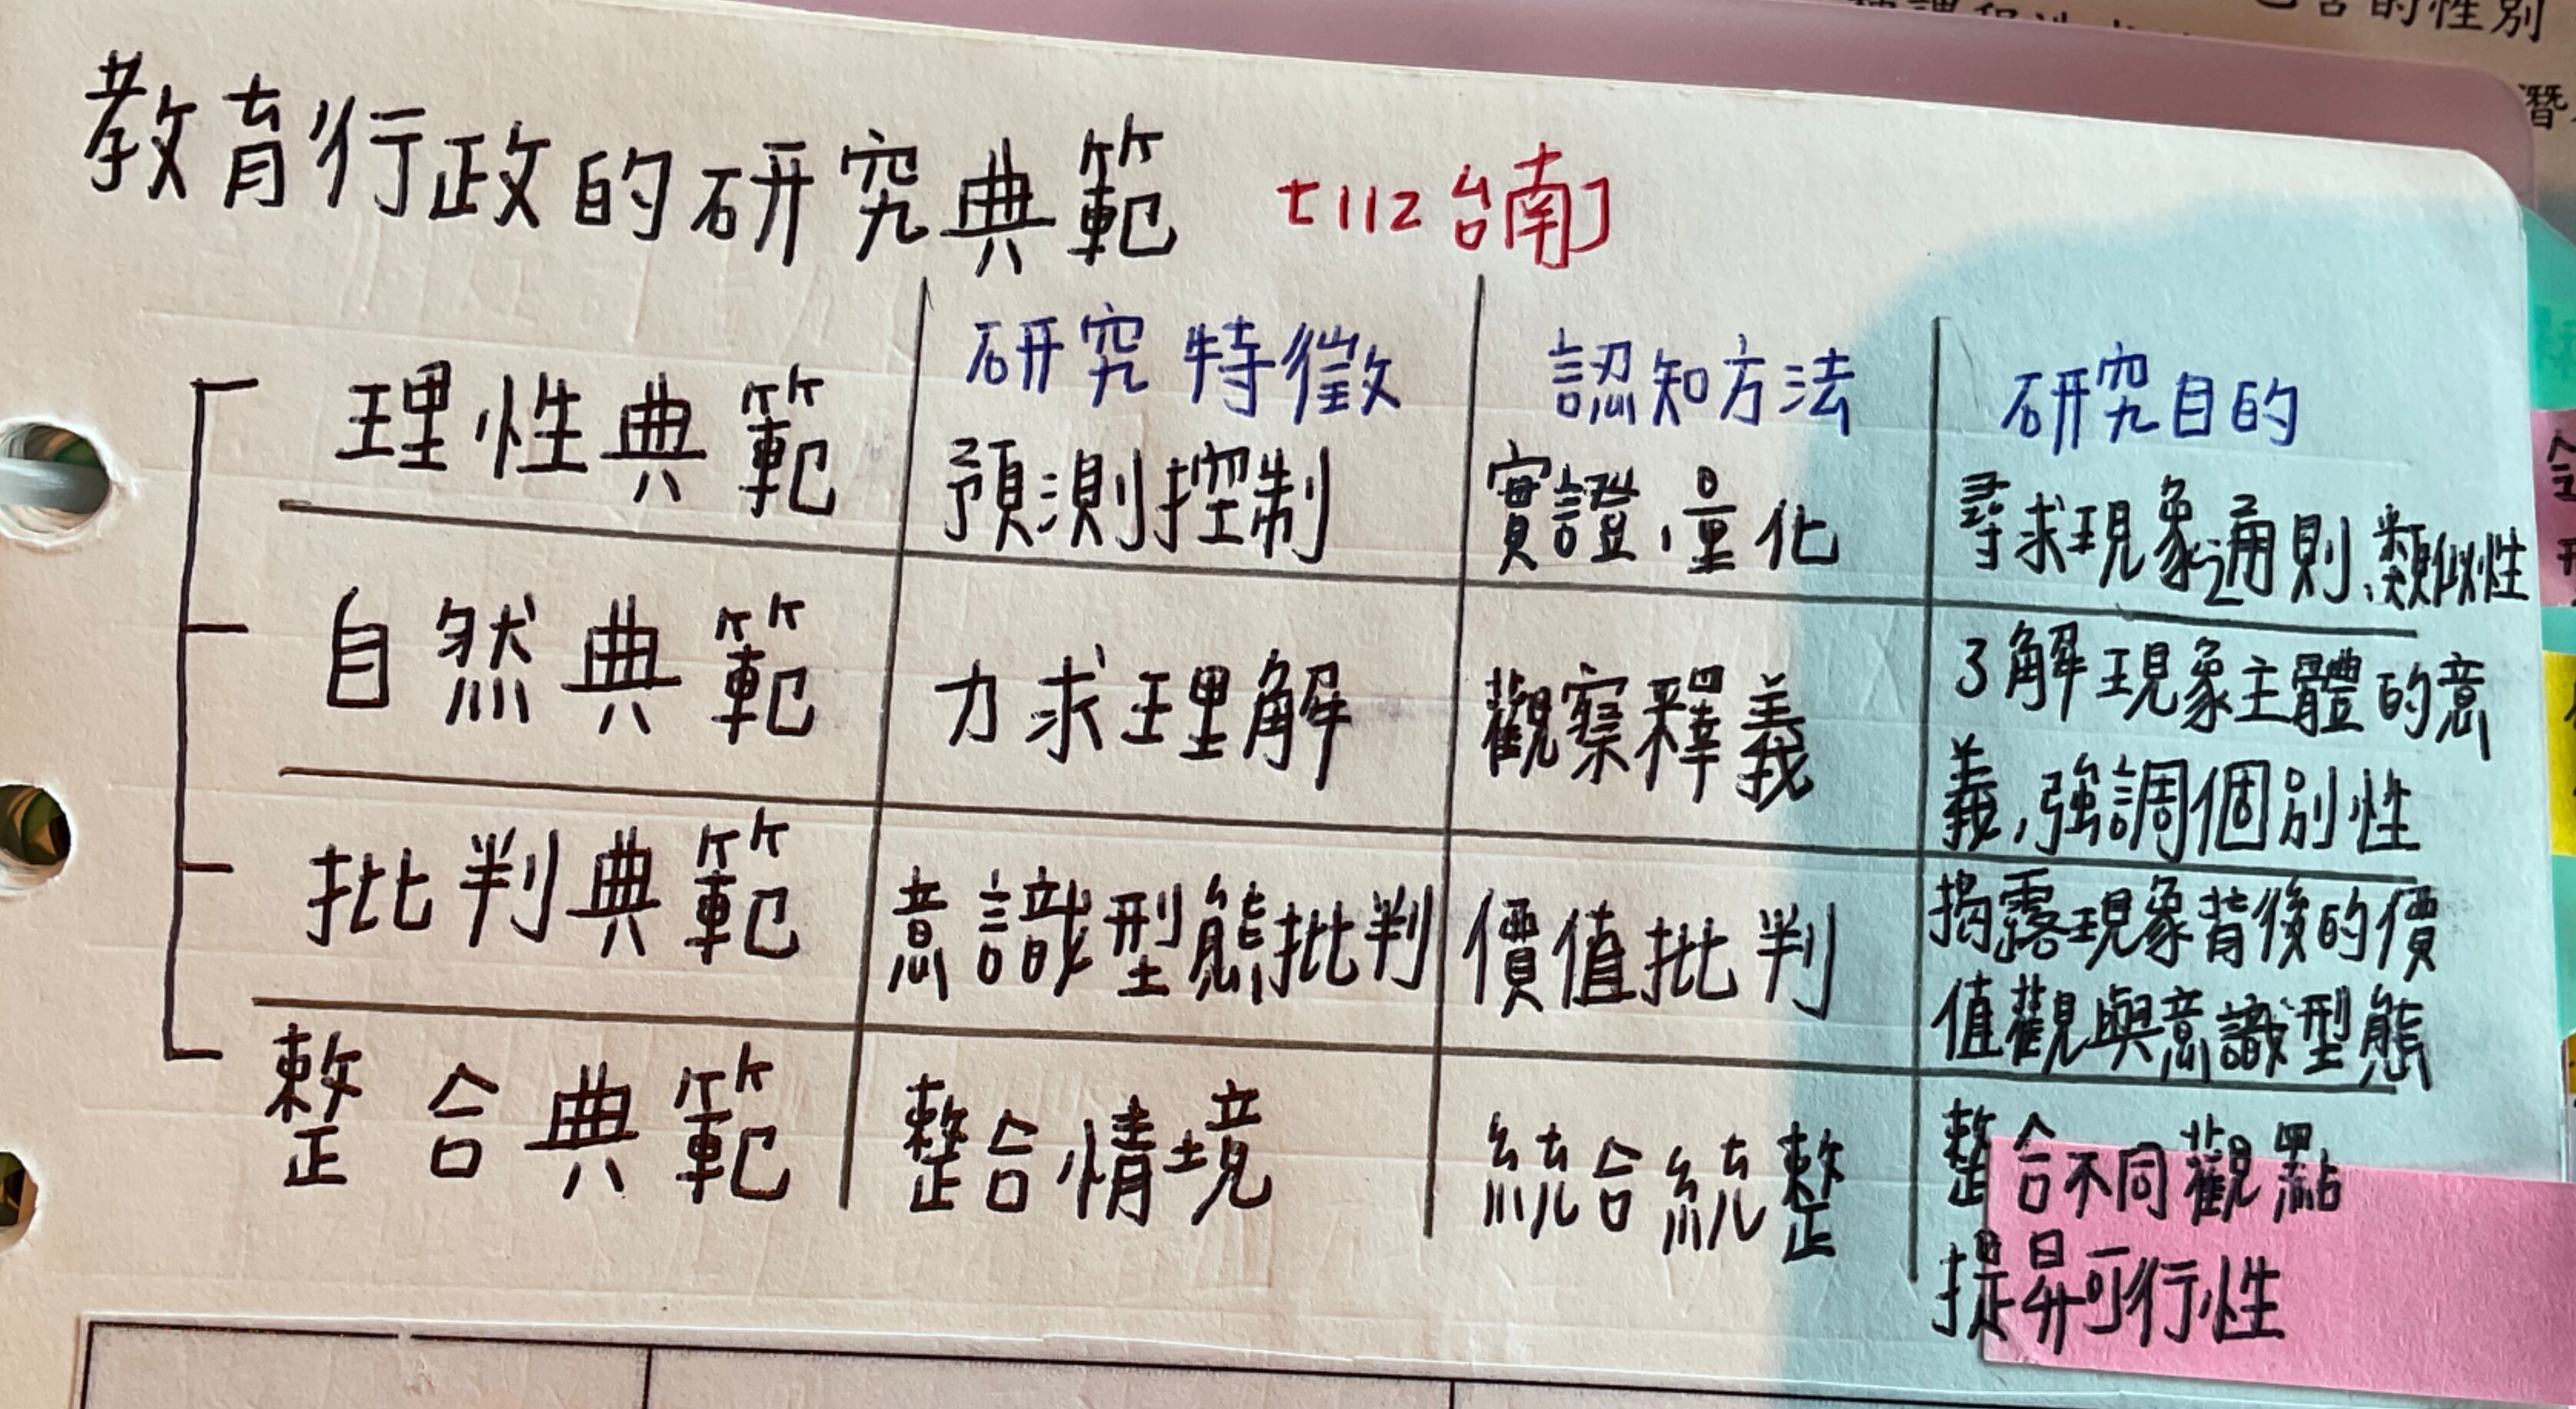 包含的性別
教育行政的研究典範 [112台南]
研究特徵 認知方法 研究目的
理性典範 預測控制 實證、量化 尋求現象通則、類似性
自然典範 力求理解 觀察釋義 了解現象主體的意
義,強調個別性
批判典範 意識型態批判 價值批判 揭露現象背後的價
值觀與意識型態
整合典範 整合情境 統合統整 整合不同觀點
提昇可行性